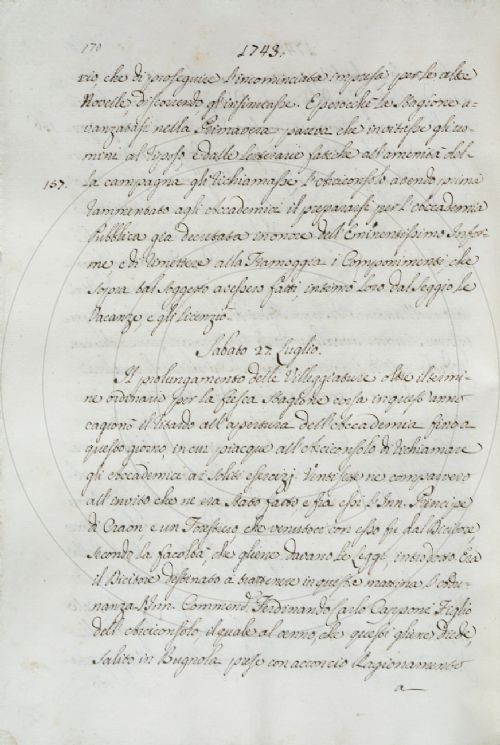 170
1743.
vio che di proseguire l'incominciata impresa per le altre
Novelle, discorrendo gl'insinuasse. E perocchè la Stagione a-
vanzatasi nella Primavera pareva che invitasse gli uo-
mini al spasso, e dalle letterarie fatiche all'amenità del-
157. la campagna gli richiamasse, l'Arciconsolo avendo prima
rammentato agli Accademici il prepararsi per l'Accademia
Pubblica già decretata in onore dell'Eminentissimo Infor-
me e di rimettere alla Tramoggia i Componimenti, che
sopra tal soggetto avessero fatti, intimò loro dal seggio le
Vacanze e gli licenziò.
Sabato 27 Luglio.
Il prolungamento delle Villeggiature oltre il termi-
ne ordinario per la fresca Stagione corsa in quest'anno
cagionò il ritardo all'apertura dell'Accademia fino a
questo giorno, in cui piacque all'Arciconsolo di richiamare
gli Accademici ai soliti esercizi. Venti sette ne comparvero
all'invito che ne era stato fatto e fra essi l'Inn. Principe
di Craon e un Forestiero che venutoci con esso fu dal Dicitore,
secondo la facoltà, che gliene davano le Leggi, introdotto. Era
il Dicitore destinato a trattenere in questa mattina l'Adu-
nanza l'Inn. Commend. Ferdinando Carlo Capponi Figlio
dell'Arciconsolo, il quale al cenno, che questi gliene diede,
salito in Bugnola prese con acconcio Ragionamento
a